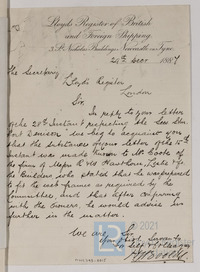 Lloyd's Register of British
and Foreign Shipping.
3, St. Nicholas Buildings, Newcastle on Tyne
24th Decr 1887
The Secretary
Lloyd's Register
London
Sir,
In reply to your letter
of the 23rd Instant respecting the
we beg to acquaint you
that the substance of your letter of the 15th
Instant was made known to Mr
of the firm of Messrs Hawthorn, Leslie & Co
the Builders who stated that he was prepared
to fit the web frames as required by the
Committee, and that after conferring
with the Owners, he would advise us
further in the matter.
We are, Sir,
Your obedt Servants
2021